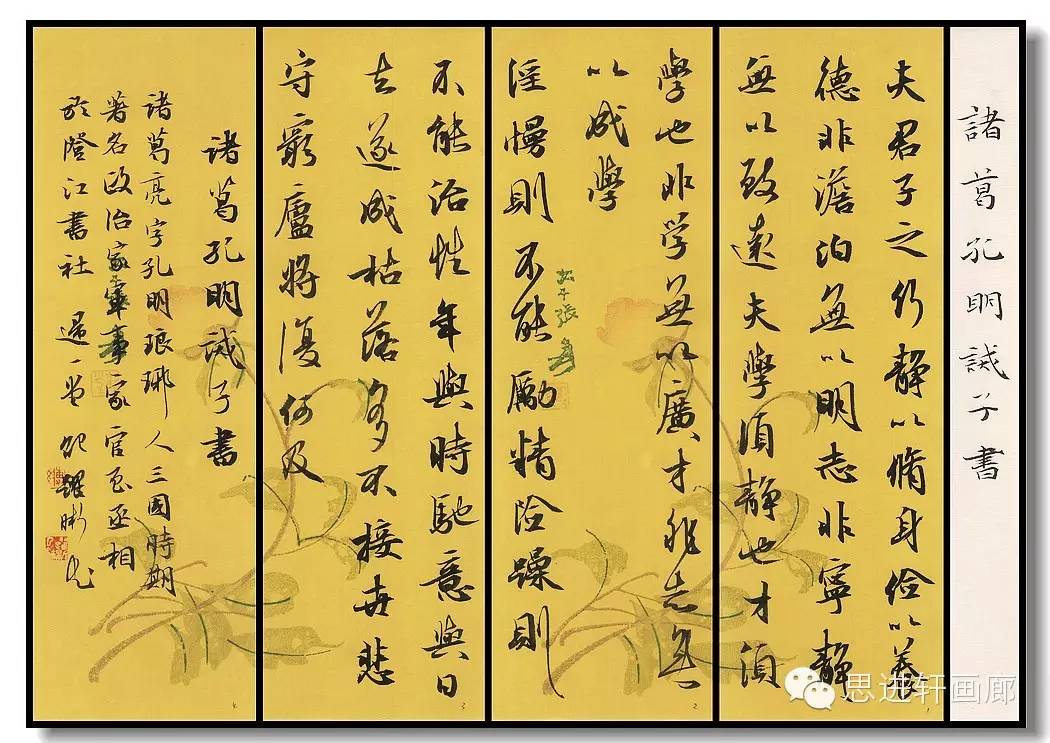 諸葛孔明誡子書
夫君子之行靜以脩身儉以養
德非澹泊無以明志非寧靜
無以致遠夫學須靜也才須
學也非学無以廣才非志無
以成學
淫慢則不能勵精险躁則
不能治性年與時馳意與日
去遂成枯落多不接世悲
守窮廬將復何及
诸葛孔明诫子書
诸葛亮字孔明琅琊人三國時期
著名政治家軍事家官至丞相
於澄江書社
思进轩画廊